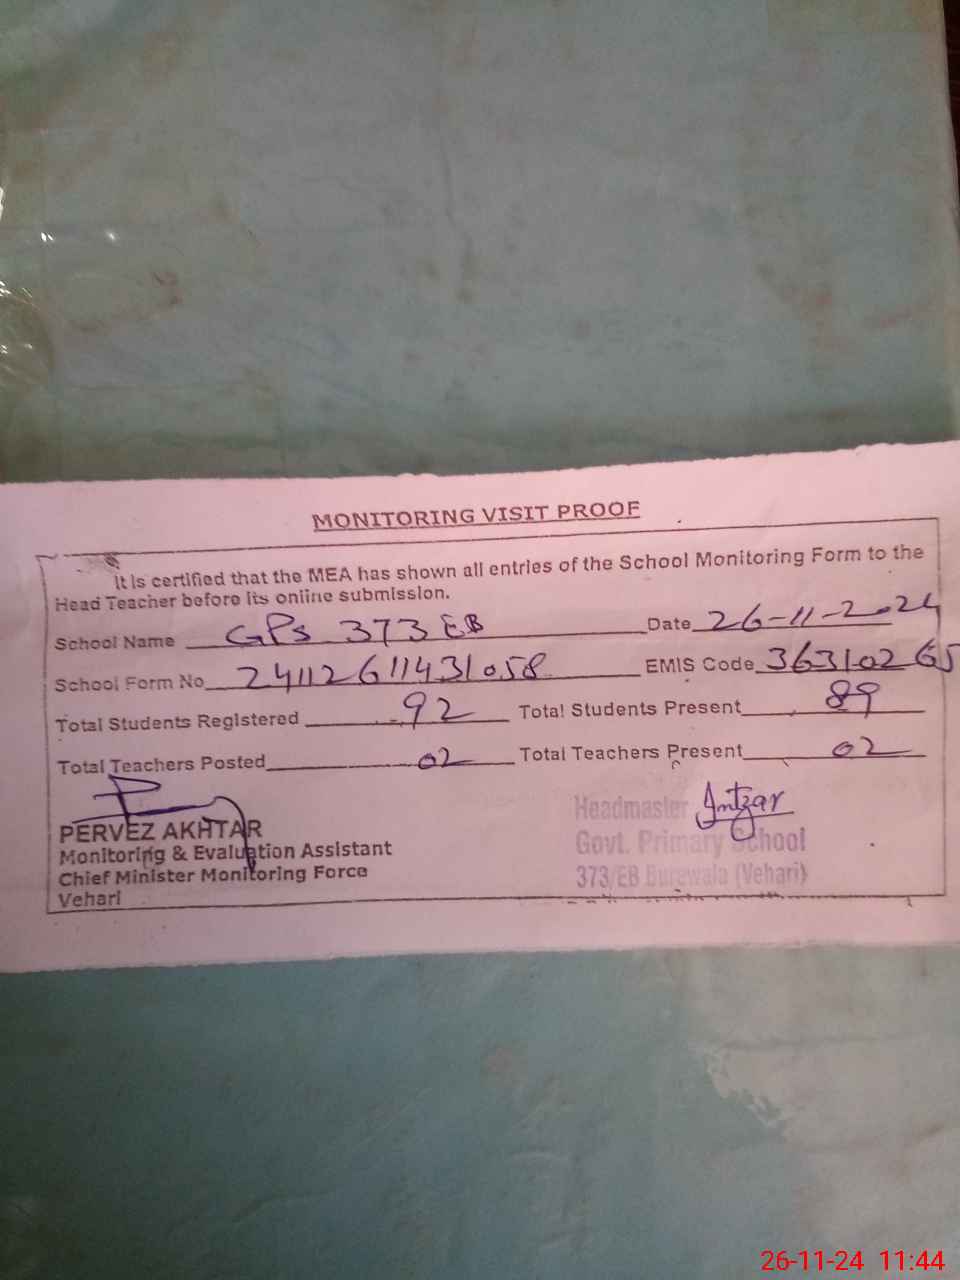 MONITORING VISIT PROOF
It is certified that the MEA has shown all entries of the School Monitoring Form to the
Head Teacher before its online submission.
School Name GPS 373 EB Date 26-11-2024
School Form No 24112611431058 EMIS Code 36310265
Total Students Registered 92 Total Students Present 89
Total Teachers Posted 02 Total Teachers Present 02
PERVEZ AKHTAR
Monitoring & Evaluation Assistant
Chief Minister Monitoring Force
Vehari
Headmaster Intzar
Govt. Primary School
373/EB Burewala (Vehari)
26-11-24 11:44